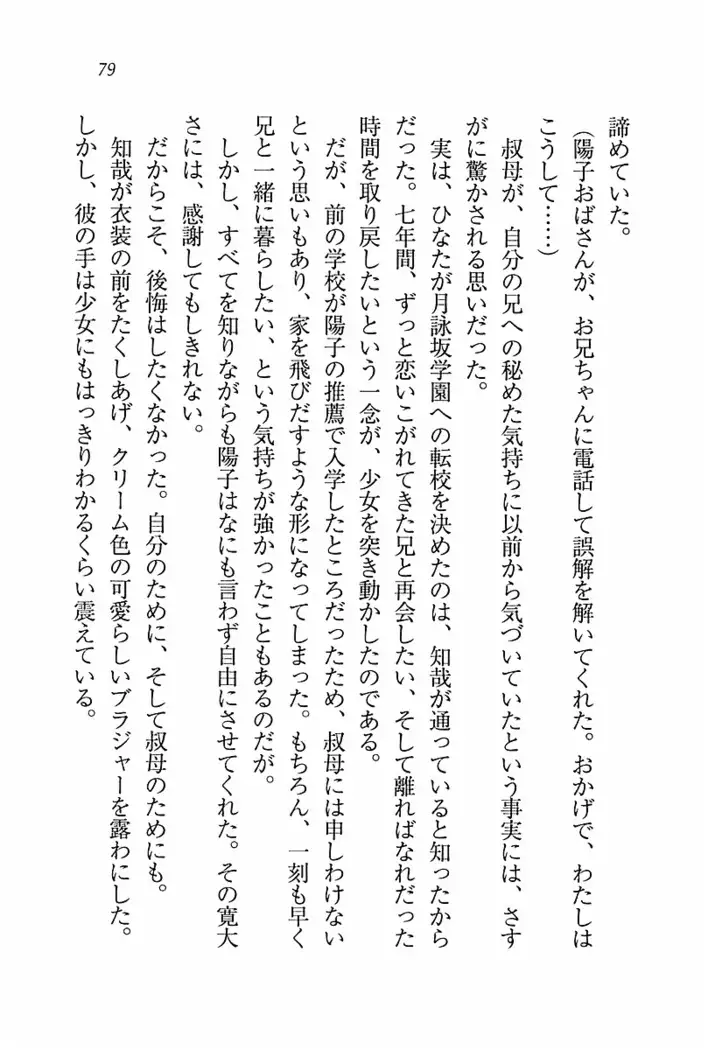 79
諦めていた。
（陽子おばさんが、お兄ちゃんに電話して誤解を解いてくれた。おかげで、わたしは
こうして……）
叔母が、自分の兄への秘めた気持ちに以前から気づいていたという事実には、さす
がに驚かされる思いだった。
実は、ひなたが月詠坂学園への転校を決めたのは、知哉が通っていると知ったから
だった。七年間、ずっと恋いこがれてきた兄と再会したい、そして離ればなれだった
時間を取り戻したいという一念が、少女を突き動かしたのである。
だが、前の学校が陽子の推薦で入学したところだったため、叔母には申しわけない
という思いもあり、家を飛びだすような形になってしまった。もちろん、一刻も早く
兄と一緒に暮らしたい、という気持ちが強かったこともあるのだが。
しかし、すべてを知りながらも陽子はなにも言わず自由にさせてくれた。その寛大
さには、感謝してもしきれない。
だからこそ、後悔はしたくなかった。自分のために、そして叔母のためにも。